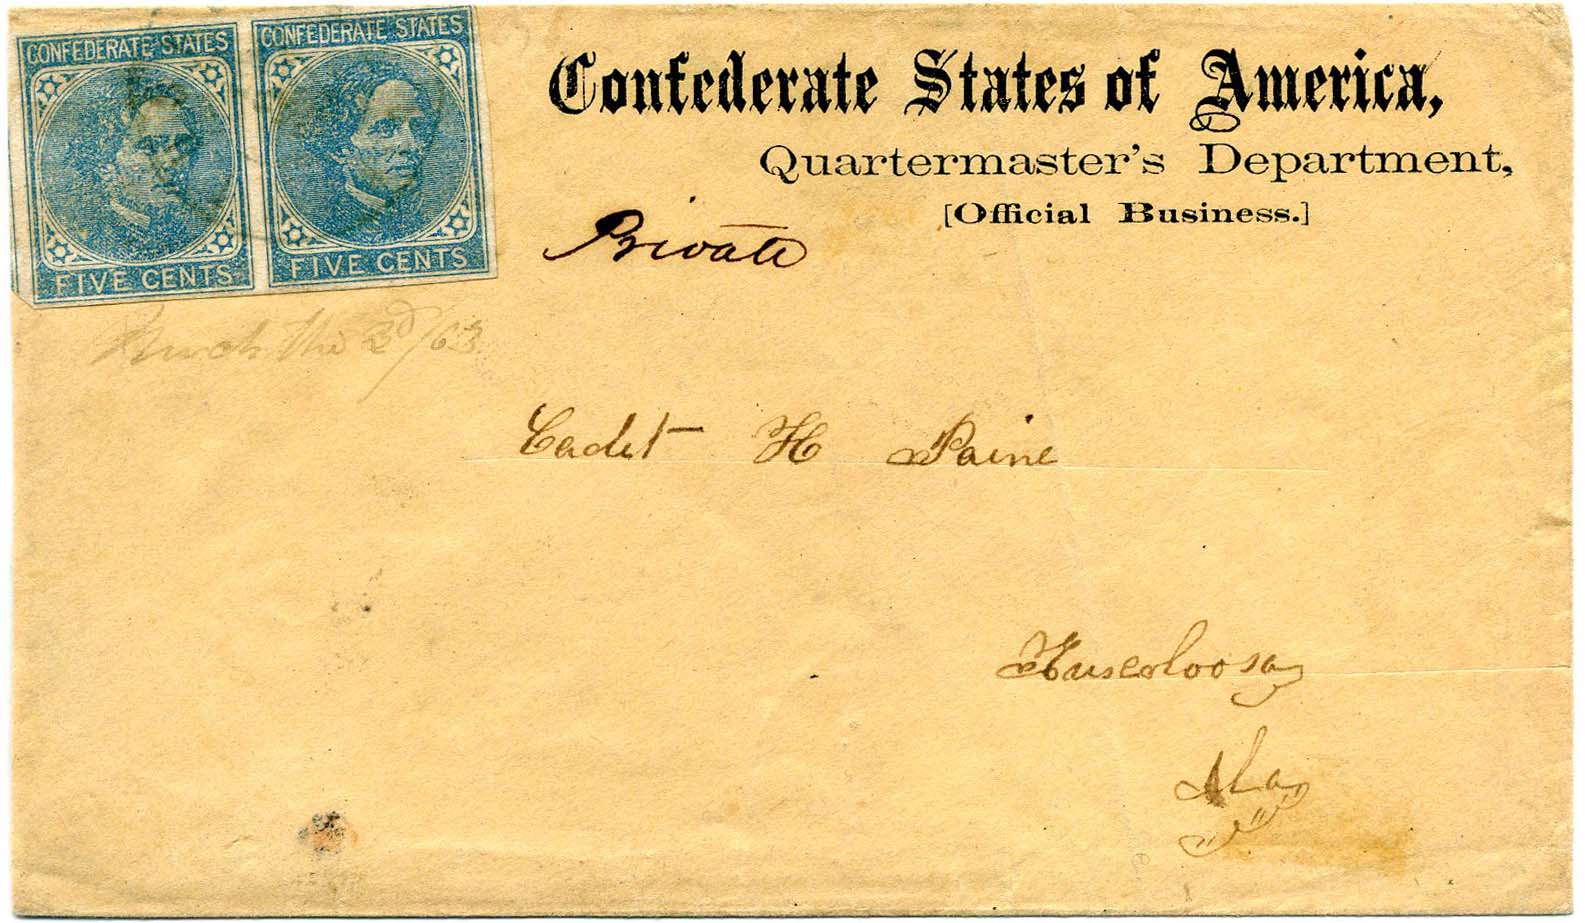 CONFEDERATE STATES
FIVE CENTS
CONFEDERATE STATES
FIVE CENTS
Confederate States of America,
Quartermaster's Department,
[Official Business.]
Private
March the 2d/63
Cadet H Paine
Tuscaloosa
Ala